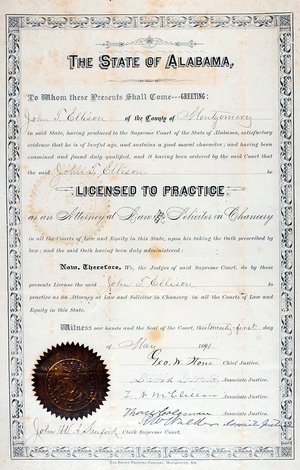 THE STATE OF ALABAMA,
To Whom these Presents Shall Come---GREETING:
John T. Ellison of the County of Montgomery
in said State, having produced to the Supreme Court of the State of Alabama, satisfactory
evidence that he is of lawful age, and sustains a good moral character; and having been
examined and found duly qualified, and it having been ordered by the said Court that
the said John T. Ellison be
LICENSED TO PRACTICE
as an Attorney at Law & Solicitor in Chancery
in all the Courts of Law and Equity in this State, upon his taking the Oath prescribed by
law; and the said Oath having been duly administered;
Now, Therefore, We, the Judges of said Supreme Court, do by these
presents License the said John T. Ellison to
practice as an Attorney at Law and Solicitor in Chancery in all the Courts of Law and
Equity in this State.
Witness our hands and the Seal of the Court, this twenty-first day
of May 1891
Geo. W. Stone Chief Justice.
David Associate Justice.
Associate Justice.
Associate Justice.
Associate Justice
Clerk Supreme Court.
The Brown Printing Company, Montgomery, Ala.